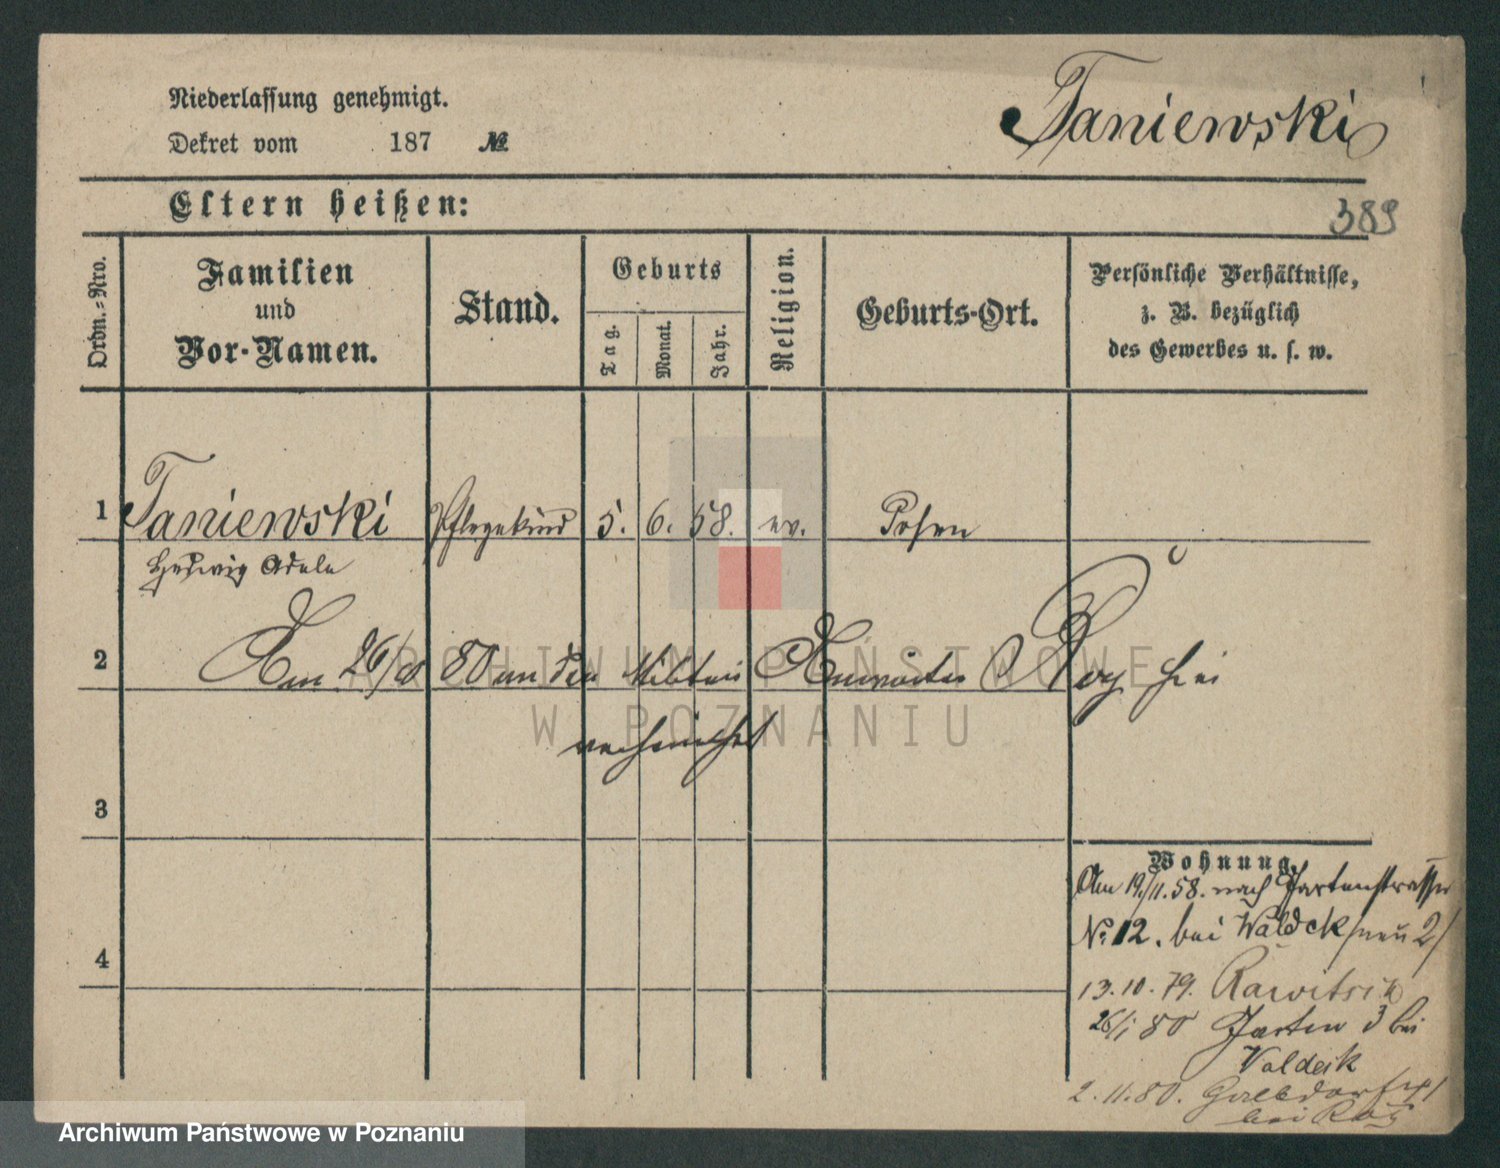 Niederlassung genehmigt.
Taniewski
Dekret vom 187 №
Eltern heißen:
389
Ordn.-Nro.
Familien
und
Vor-Namen.
Stand.
Geburts
Tag.
Monat.
Jahr.
Religion.
Geburts-Ort.
Persönliche Verhältnisse,
z. B. bezüglich
des Gewerbes u. s. w.
1 Taniewski Pflegekind 5. 6. 58. ev. Posen
Hedwig Adele
2 Am 26/ 80 an den Militair Anwärter Roy hier
verheirathet
3
Wohnung.
Am 19/11.58. nach Gartenstrasse
No 12. bei Waldek /neu 2/
4
13.10.79. Rawitsch
26/ 80 Garten 3 bei
Valdeik
2.11.80. bei Roy
ARCHIWUM PAŃSTWOWE
W POZNANIU
Archiwum Państwowe w Poznaniu